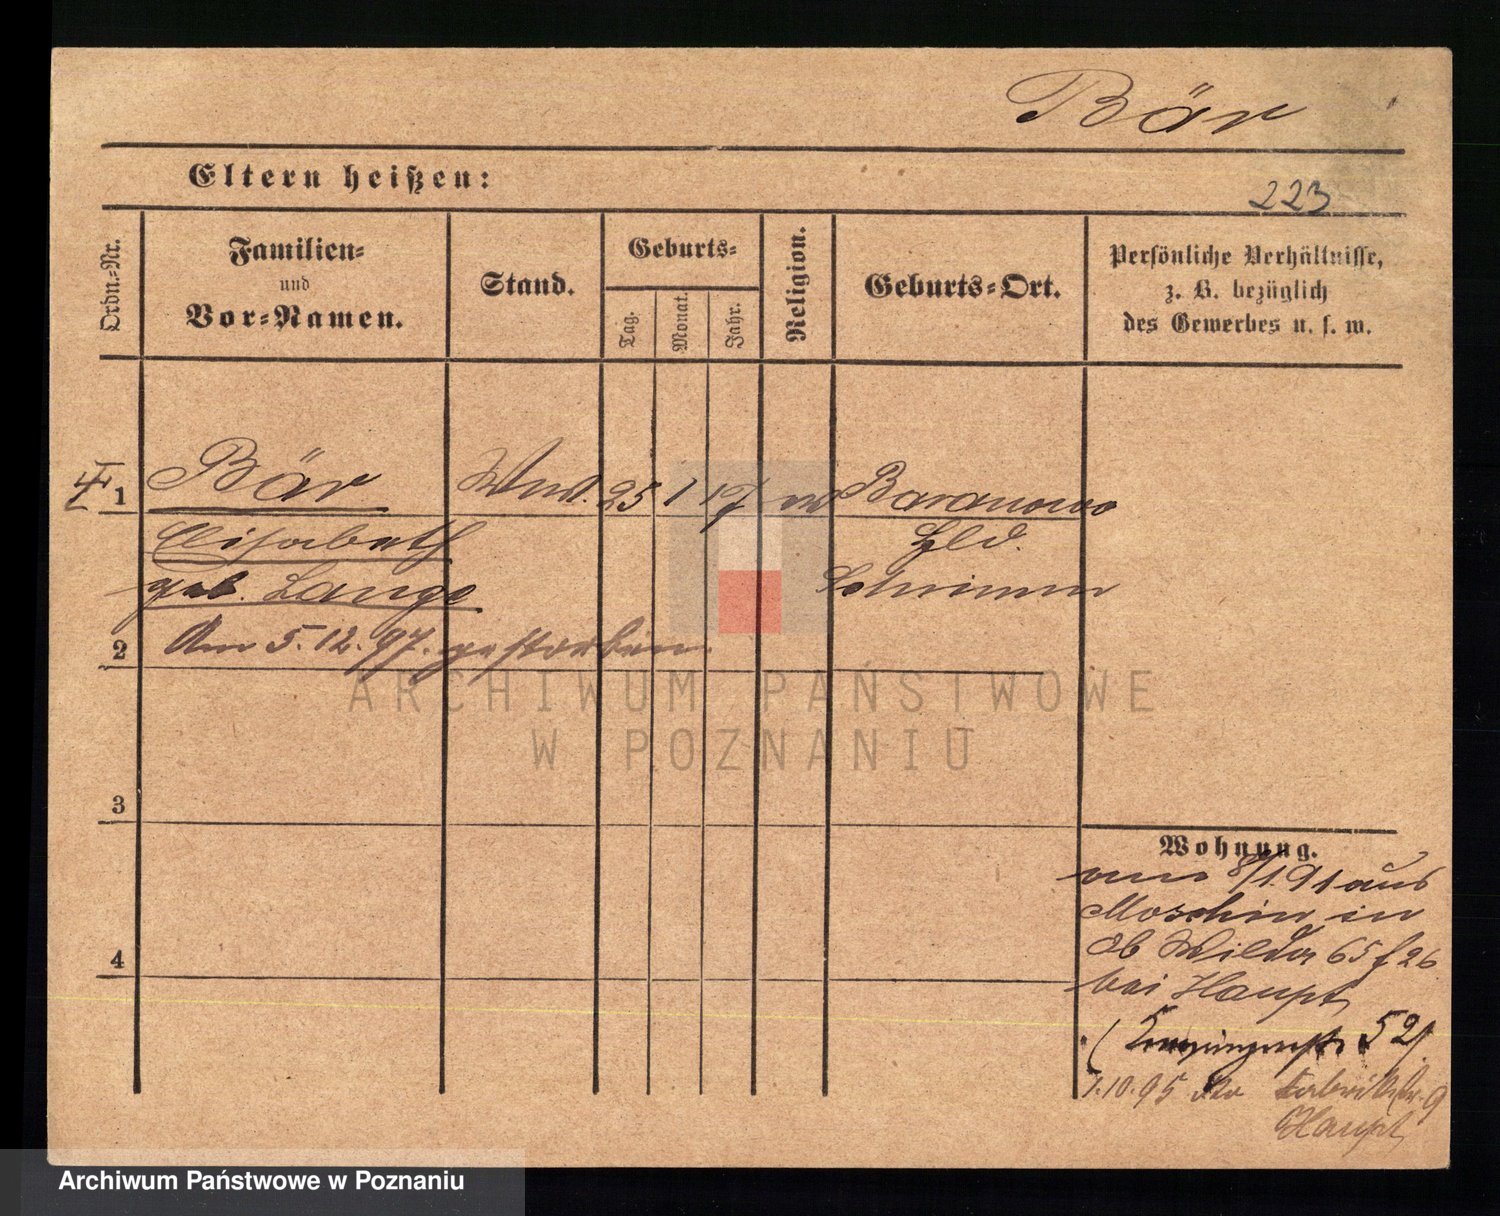 Bär
Eltern heißen:
223
Ordn.-Nr.
Familien-
und
Vor-Namen.
Stand.
Geburts-
Tag.
Monat.
Jahr.
Religion.
Geburts-Ort.
Persönliche Verhältnisse,
z. B. bezüglich
des Gewerbes u. s. w.
1 Bär Wwe. 25 1 17 Baranowo
Elisabeth
geb. Lange Schrimm
2 Am 5.12.97. gestorben.
ARCHIWUM PAŃSTWOWE
W POZNANIU
3
Wohnung.
8/1.91 aus
Moschin in
Ob Wilda 65 f 26
bei Haupt
4
52/
1.10.95 Fabrikstr. 9
Haupt
Archiwum Państwowe w Poznaniu